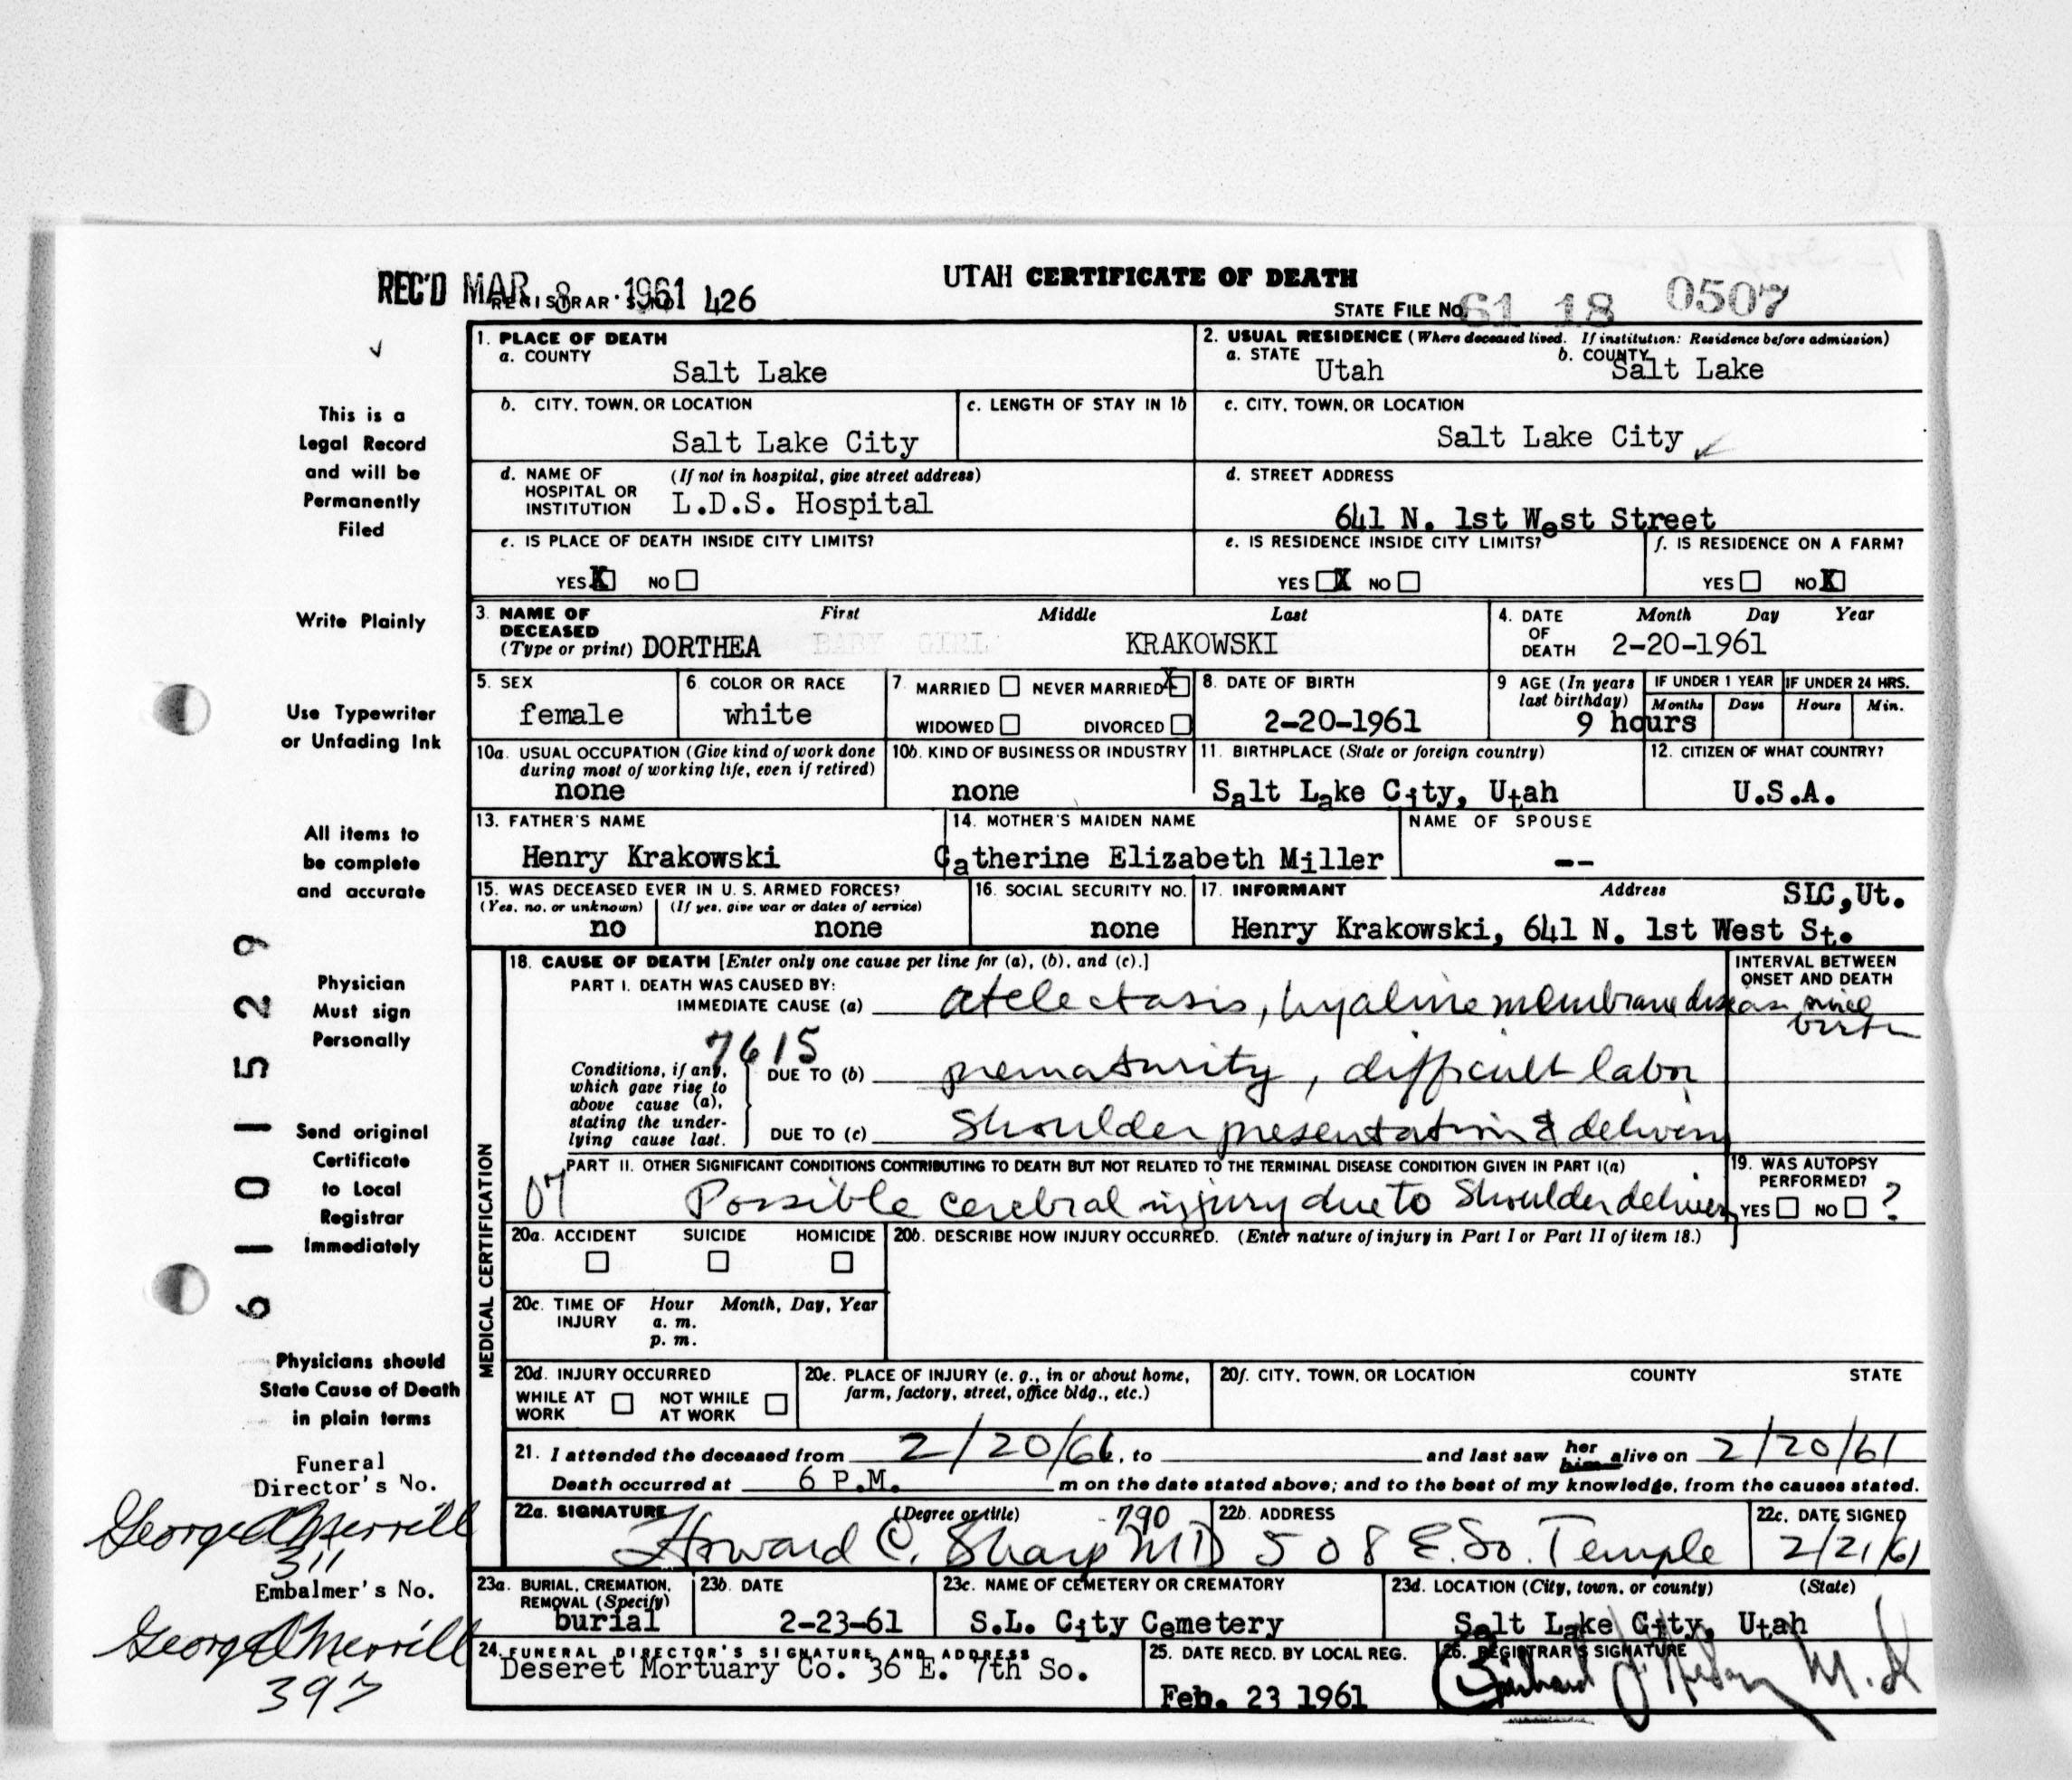 UTAH CERTIFICATE OF DEATH
REC'D MAR 8 1961 426
REGISTRAR'S NO.
STATE FILE No. 61 18 0507
1. PLACE OF DEATH
a. COUNTY
Salt Lake
2. USUAL RESIDENCE (Where deceased lived. If institution: Residence before admission)
a. STATE
Utah
b. COUNTY
Salt Lake
b. CITY, TOWN, OR LOCATION
Salt Lake City
c. LENGTH OF STAY IN 1b
c. CITY, TOWN, OR LOCATION
Salt Lake City
d. NAME OF HOSPITAL OR INSTITUTION
(If not in hospital, give street address)
L.D.S. Hospital
d. STREET ADDRESS
641 N. 1st West Street
e. IS PLACE OF DEATH INSIDE CITY LIMITS?
YES X NO
e. IS RESIDENCE INSIDE CITY LIMITS?
YES X NO
f. IS RESIDENCE ON A FARM?
YES NO X
3. NAME OF DECEASED (Type or print)
First Middle Last
DORTHEA BABY GIRL KRAKOWSKI
4. DATE OF DEATH
Month Day Year
2-20-1961
5. SEX
female
6. COLOR OR RACE
white
7. MARRIED NEVER MARRIED X
WIDOWED DIVORCED
8. DATE OF BIRTH
2-20-1961
9 AGE (In years last birthday)
IF UNDER 1 YEAR IF UNDER 24 HRS.
Months Days Hours Min.
9 hours
10a. USUAL OCCUPATION (Give kind of work done during most of working life, even if retired)
none
10b. KIND OF BUSINESS OR INDUSTRY
none
11. BIRTHPLACE (State or foreign country)
Salt Lake City, Utah
12. CITIZEN OF WHAT COUNTRY?
U.S.A.
13. FATHER'S NAME
Henry Krakowski
14. MOTHER'S MAIDEN NAME
Catherine Elizabeth Miller
NAME OF SPOUSE
--
15. WAS DECEASED EVER IN U. S. ARMED FORCES?
(Yes, no, or unknown) (If yes, give war or dates of service)
no none
16. SOCIAL SECURITY NO.
none
17. INFORMANT Address
SLC,Ut.
Henry Krakowski, 641 N. 1st West St.
MEDICAL CERTIFICATION
18. CAUSE OF DEATH [Enter only one cause per line for (a), (b), and (c).]
INTERVAL BETWEEN ONSET AND DEATH
PART I. DEATH WAS CAUSED BY:
IMMEDIATE CAUSE (a) atelectasis, hyaline membrane disease since birth
7615
Conditions, if any, which gave rise to above cause (a), stating the underlying cause last.
DUE TO (b) prematurity, difficult labor
DUE TO (c) Shoulder presentation & delivery
PART II. OTHER SIGNIFICANT CONDITIONS CONTRIBUTING TO DEATH BUT NOT RELATED TO THE TERMINAL DISEASE CONDITION GIVEN IN PART I(a)
07 Possible cerebral injury due to Shoulder delivery
19. WAS AUTOPSY PERFORMED?
YES NO ?
20a. ACCIDENT SUICIDE HOMICIDE
20b. DESCRIBE HOW INJURY OCCURRED. (Enter nature of injury in Part I or Part II of item 18.)
20c. TIME OF INJURY
Hour Month, Day, Year
a. m.
p. m.
20d. INJURY OCCURRED
WHILE AT WORK NOT WHILE AT WORK
20e. PLACE OF INJURY (e. g., in or about home, farm, factory, street, office bldg., etc.)
20f. CITY, TOWN, OR LOCATION COUNTY STATE
21. I attended the deceased from 2/20/61, to and last saw her him alive on 2/20/61
Death occurred at 6 P.M. m on the date stated above; and to the best of my knowledge, from the causes stated.
22a. SIGNATURE (Degree or title)
790
Howard C. Sharp MD
22b. ADDRESS
508 E. So. Temple
22c. DATE SIGNED
2/21/61
23a. BURIAL, CREMATION, REMOVAL (Specify)
burial
23b. DATE
2-23-61
23c. NAME OF CEMETERY OR CREMATORY
S.L. City Cemetery
23d. LOCATION (City, town, or county) (State)
Salt Lake City, Utah
24. FUNERAL DIRECTOR'S SIGNATURE AND ADDRESS
Deseret Mortuary Co. 36 E. 7th So.
25. DATE RECD. BY LOCAL REG.
Feb. 23 1961
26. REGISTRAR'S SIGNATURE
M.D
This is a
Legal Record
and will be
Permanently
Filed
Write Plainly
Use Typewriter
or Unfading Ink
All items to
be complete
and accurate
Physician
Must sign
Personally
Send original
Certificate
to Local
Registrar
Immediately
Physicians should
State Cause of Death
in plain terms
61010529
Funeral
Director's No.
George Merrill
311
Embalmer's No.
George Merrill
397